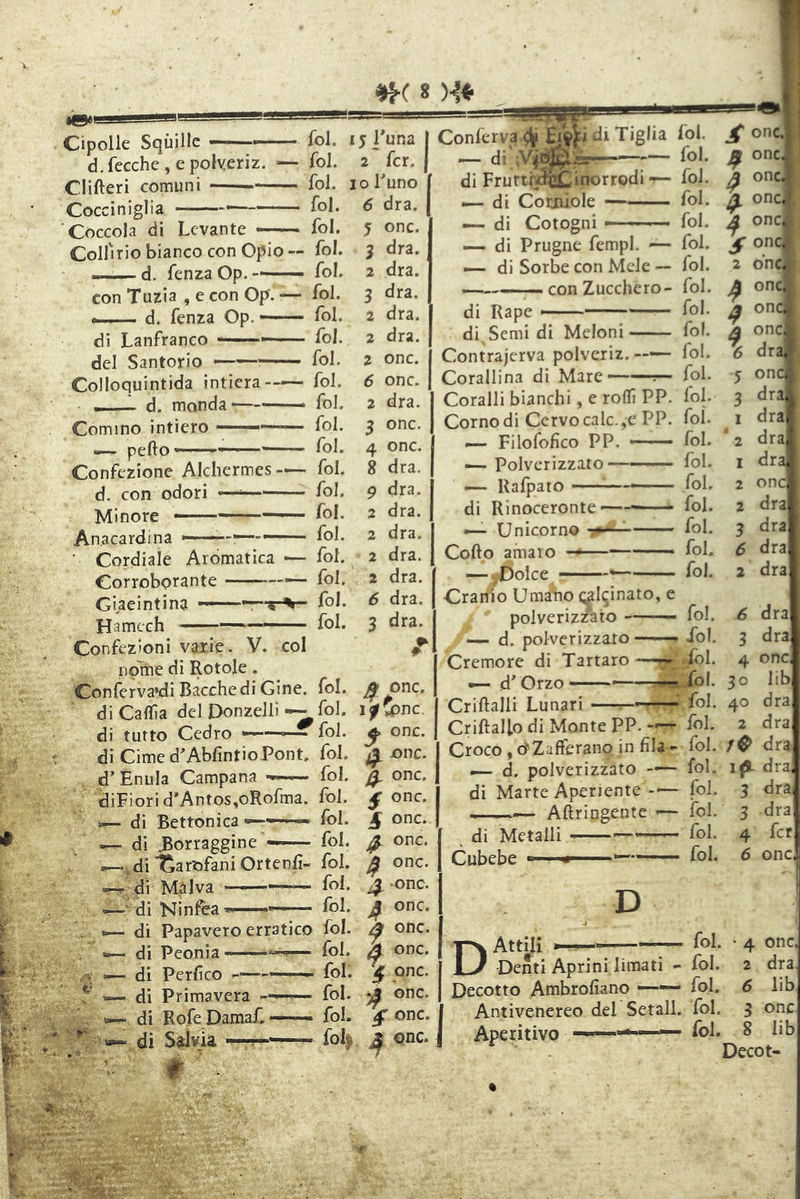 ( 8 )
Cipolle Squille ſol. 15 l'una
d. ſecche, e polveriz. — ſol. 2 ſcr.
Cliſteri comuni ſol. 10 l'uno
Cocciniglia ſol. 6 dra.
Coccola di Levante ſol. 5 onc.
Collirio bianco con Opio — ſol. 3 dra.
— d. ſenza Op. — ſol. 2 dra.
con Tuzia, e con Op. — ſol. 3 dra.
— d. ſenza Op. ſol. 2 dra.
di Lanfranco ſol. 2 dra.
del Santorio ſol. 2 onc.
Colloquintida intiera — ſol. 6 onc.
— d. monda ſol. 2 dra.
Comino intiero ſol. 3 onc.
— peſto ſol. 4 onc.
Confezione Alchermes — ſol. 8 dra.
d. con odori ſol. 9 dra.
Minore ſol. 2 dra.
Anacardina ſol. 2 dra.
Cordiale Aromatica — ſol. 2 dra.
Corroborante ſol. 2 dra.
Giacintina ſol. 6 dra.
Hamech ſol. 3 dra.
Confezioni varie. V. col
nome di Rotole.
Conſerva di Bacche di Gine. ſol. onc.
di Caſſia del Donzelli — ſol. onc
di tutto Cedro ſol. onc.
di Cime d'Abſintio Pont. ſol. onc.
d'Enula Campana ſol. onc.
di Fiori d'Antos, o Roſma. ſol. onc.
— di Bettonica ſol. onc.
— di Borraggine ſol. onc.
— di Garofani Ortenſi- ſol. onc.
— di Malva ſol. onc.
— di Ninfea ſol. onc.
— di Papavero erratico ſol. onc.
— di Peonia ſol. onc.
— di Perſico ſol. onc.
— di Primavera ſol. onc.
— di Roſe Damaſ. ſol. onc.
— di Salvia ſol. onc.
Conſerva di di Tiglia ſol. onc.
— di ſol. onc.
di Frutti Cinorrodi — ſol. onc.
— di Corniole ſol. onc.
— di Cotogni ſol. onc.
— di Prugne ſempl. — ſol. onc.
— di Sorbe con Mele — ſol. 2 onc.
— con Zucchero - ſol. onc.
di Rape ſol. onc.
di Semi di Meloni ſol. onc.
Contrajerva polveriz. — ſol. 6 dra.
Corallina di Mare ſol. 5 onc.
Coralli bianchi, e roſſi PP. ſol. 3 dra.
Corno di Cervo calc., e PP. ſol. 1 dra.
— Filoſofico PP. ſol. 2 dra.
— Polverizzato ſol. 1 dra.
— Raſpato ſol. 2 onc.
di Rinoceronte ſol. 2 dra.
— Unicorno ſol. 3 dra.
Coſto amaro ſol. 6 dra.
— Dolce ſol. 2 dra.
Cranio Umano calcinato, e
polverizzato ſol. 6 dra.
— d. polverizzato ſol. 3 dra.
Cremore di Tartaro ſol. 4 onc.
— d'Orzo ſol. 30 lib.
Criſtalli Lunari ſol. 40 dra.
Criſtallo di Monte PP. — ſol. 2 dra.
Croco, o Zafferano in fila - ſol. dra.
— d. polverizzato — ſol. dra.
di Marte Aperiente — ſol. 3 dra.
— Aſtringente — ſol. 3 dra.
di Metalli ſol. 4 ſcr.
Cubebe ſol. 6 onc.
D
DAttili ſol. 4 onc.
Denti Aprini limati - ſol. 2 dra.
Decotto Ambroſiano ſol. 6 lib.
Antivenereo del Setall. ſol. 3 onc.
Aperitivo ſol. 8 lib.
Decot-